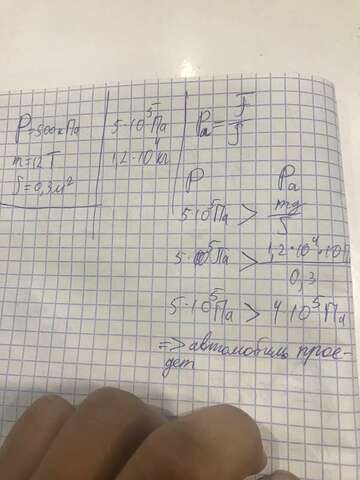 P=500кПа
m=12 Т
S=0,3м²
5·10⁵Па
1,2·10⁴кг
Pₐ=F/S
P Pₐ
5·10⁵Па > mg/S
5·10⁵Па > 1,2·10⁴·10/0,3
5·10⁵Па > 4·10⁵Па
=> автомобиль прое-
дет